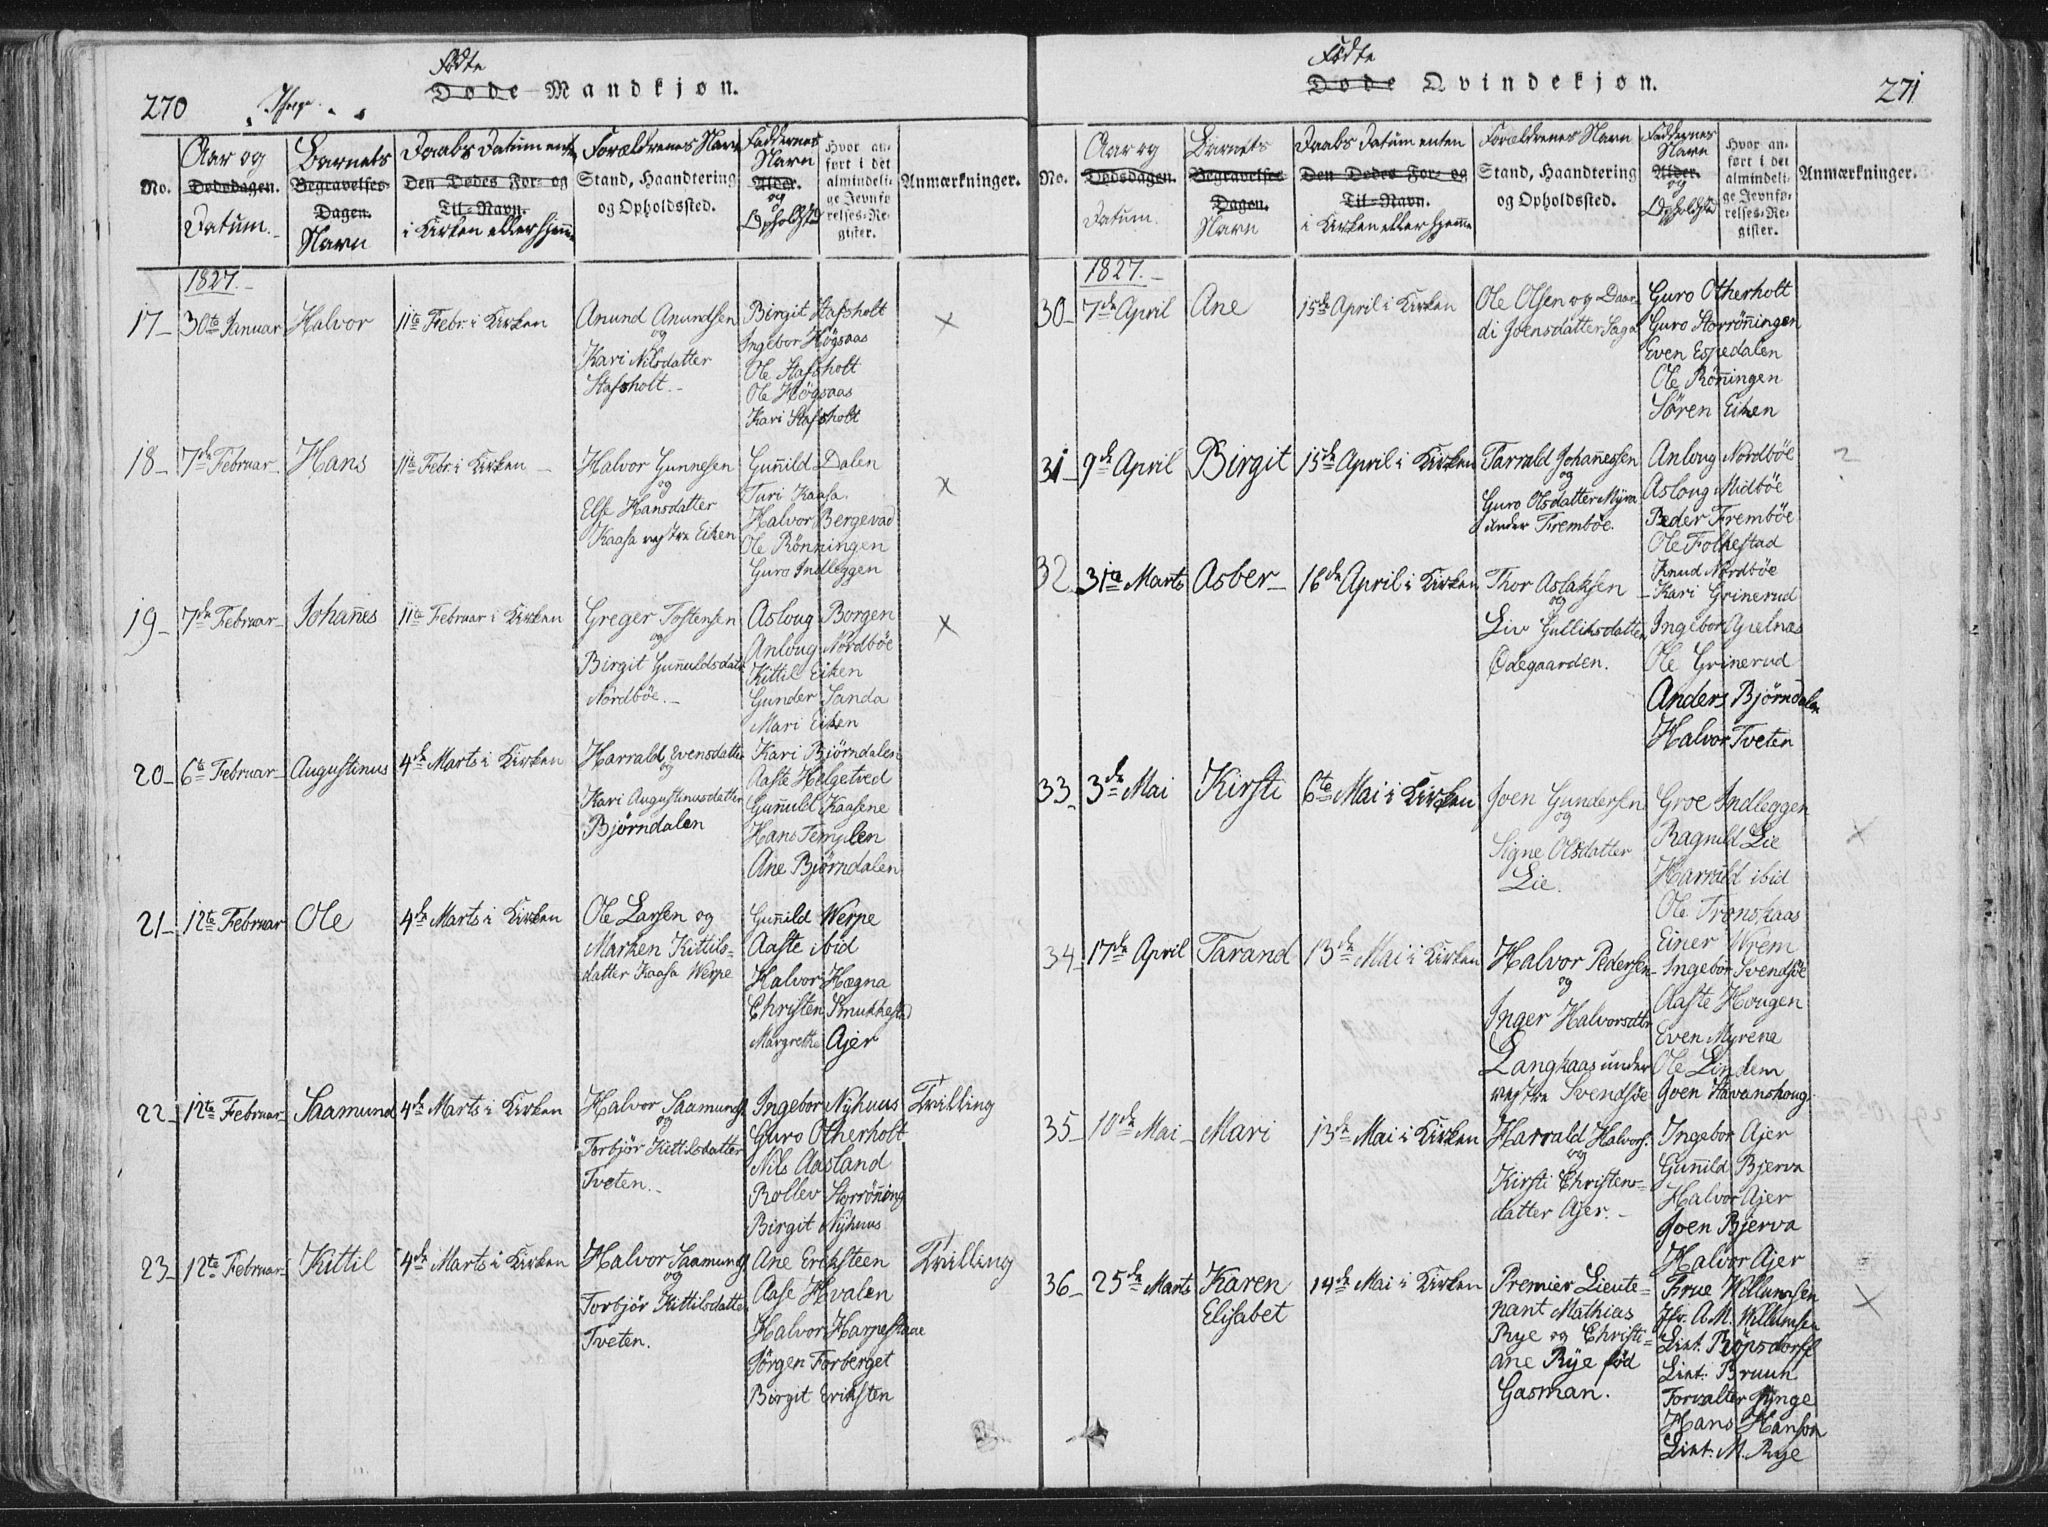 270
Födte
Døde Mandkjøn.
No.
Aar og
Dødsdagen.
Datum.
Barnets
Begravelses-
Dagen.
Navn
Daabs Datum enten
Den Dødes For- og
Til-Navn.
i Kirken eller hjemme
Forældrenes Navn
Stand, Haandtering
og Opholdssted.
Faddernes
Navn
Alder.
og
Opholdsted
Hvor an-
ført i det
almindeli-
ge Jevnfø-
relses-Re-
gister.
Anmærkninger.
1827.
17 30te Januar Halvor 11te Febr. i Kirken
Anund Anundsen
og
Kari Nilsdatter
Stafsholt.
Birgit Stafsholt
Ingebor Högsaas
Ole Stafsholt
Ole Högsaas
Kari Stafsholt
×
18 7de Februar Hans 11te Febr. i Kirken
Halvor Gunnesen
og
Else Hansdatter
Kaasa vestre Eiken
Guñild Dalen
Turi Kaasa
Halvor Bergevad
Ole Rönningen
Guro Indleggen
×
19 7de Februar Johañes 11te Februar i Kirken
Greger Tostensen
og
Birgit Guñuldsdatt
Nordböe.
Asloug Borgen
Anloug Nordböe
Kittil Eiken
Gunder Sanda
Mari Eiken
×
20 6te Februar Augustinus 4de Marts i Kirken
Harrald Evensdatter
og
Kari Augustinusdatter
Björndalen
Kari Björndalen
Aaste Helgetved
Guñuld Kaasene
Hans Templen
Ane Björndalen
21 12te Februar Ole 4de Marts i Kirken
Ole Larsen og
Marken Kittils-
datter Kaasa Werpe
Guñild Werpe
Aaste ibid
Halvor Hægna
Christen Smukkestad
Margrethe Ajer
22 12te Februar Saamund 4de Marts i Kirken
Halvor Saamunds.
og
Torbjör Kittilsdatter
Tveten.
Ingebor Nyhuus
Guro Otherholt
Nils Aasland
Rollev Storröñing
Birgit Nyhuus
Tvilling
23 12te Februar Kittil 4de Marts i Kirken
Halvor Saamunds
og
Torbjör Kittilsdatter
Tveten.
Ane Eriksteen
Aase Hvalen
Halvor Harpestaae
Jörgen Forberget
Birgit Eriksten
Tvilling
271
Födte
Døde Qvindekjøn.
No.
Aar og
Dødsdagen.
Datum.
Barnets
Begravelses
Dagen.
Navn
Daabs Datum enten
Den Dødes For- og
Til-Navn.
i Kirken eller hjemme
Forældrenes Navn
Stand, Haandtering
og Opholdssted.
Faddernes
Navn
Alder.
og
Opholdsted
Hvor an-
ført i det
almindeli-
ge Jevnfø-
relses-Re-
gister.
Anmærkninger.
1827.
30 7de April Ane 15de April i Kirken
Ole Olsen og Daar-
di Joensdatter Saga
Guro Otherholt
Guro Storröñingen
Even Espedalen
Ole Röñingen
Sören Eiken
31 9de April Birgit 15de April i Kirken
Tarrald Johañessen
og
Guro Olsdatter Myra
under Fremböe.
Anloug Nordböe
Asloug Midböe
Peder Fremböe
Ole Folkestad
Knud Nordböe
?
32 31te Marts Asber 16de April i Kirken
Thor Aslaksen
og
Liv Gulliksdatter
Ödegaarden.
Kari Grinerud
Ingebor Gjelnæs
Ole Grinerud
Anders Björndalen
Halvor Tveten
33 3de Mai Kirsti 6te Mai i Kirken
Joen Gundersen
og
Signe Olsdatter
Lie.
Groe Indleggen
Ragnild Lie
Harrald ibid
Ole Tronskaas
Einer Wrem
×
34 17de April Tarand 13de Mai i Kirken
Halvor Pedersen
og
Inger Halvorsdttr
Langkaas under
vestre Svendsöe
Ingebor Svendsöe
Aaste Hougen
Even Myrene
Ole Lindem
Joen Havanskoug
35 10de Mai Mari 13de Mai i Kirken
Harrald Halvors.
og
Kirsti Christens-
datter Ajer.
Ingebor Ajer
Guñild Bjerva
Halvor Ajer
Joen Bjerva
Halvor Ajer
36 25de Marts Karen
Elisabet
14de Mai i Kirken
Premier Lieute-
nant Mathias
Rye og Christi-
ane Rye föd
Gasman.
Frue Willumsen
Jfr. A. M. Willumsen
Lint. Röpsdorff
Lint. Bruun
Forvalter Ringe
Hans Hanson
Lint. M. Rye
×